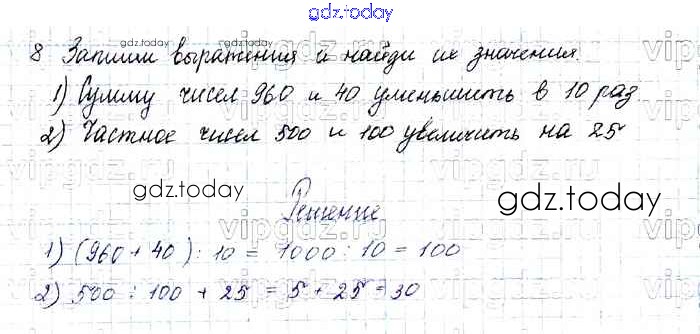 gdz.today
8 Запиши выражения и найди их значения.
gdz.today
1) Сумму чисел 960 и 40 уменьшить в 10 раз
2) Частное чисел 500 и 100 увеличить на 25
gdz.today
gdz.today
Решение
1) (960 + 40) : 10 = 1000 : 10 = 100
2) 500 : 100 + 25 = 5 + 25 = 30